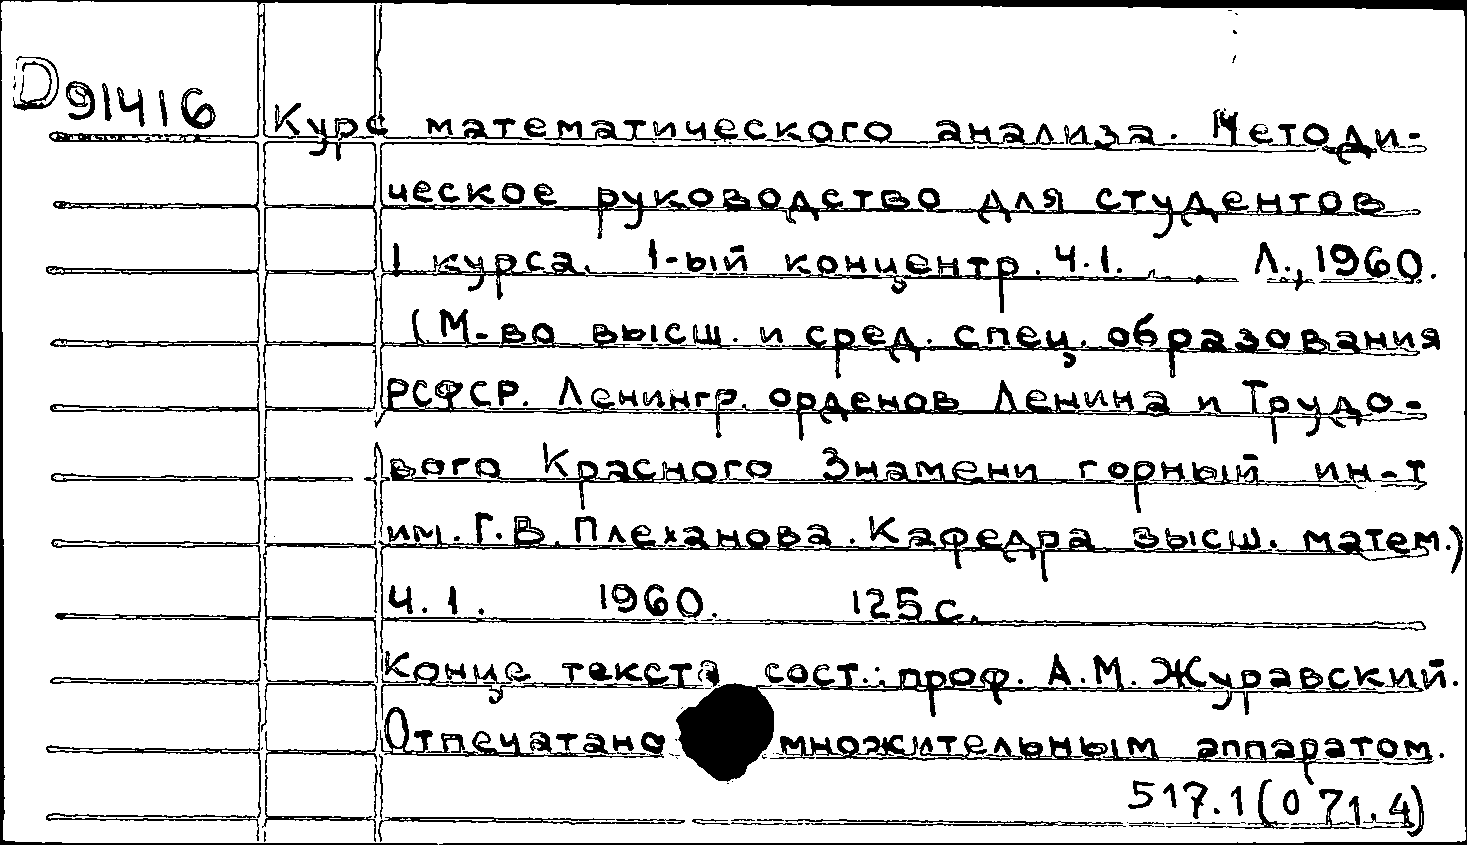 D 91416
Курс математического анализа. Методи-
ческое руководство для студентов
I курса. 1-ый концентр. Ч.1. . . Л., 1960.
(М-во высш. и сред. спец. образования
РСФСР. Ленингр. орденов Ленина и Трудо-
вого Красного Знамени горный ин-т
им. Г.В. Плеханова. Кафедра высш. матем.)
Ч.1. 1960. 125с.
Конце текста сост.: проф. А.М. Журавский.
Отпечатано множительным аппаратом.
517.1(071.4)